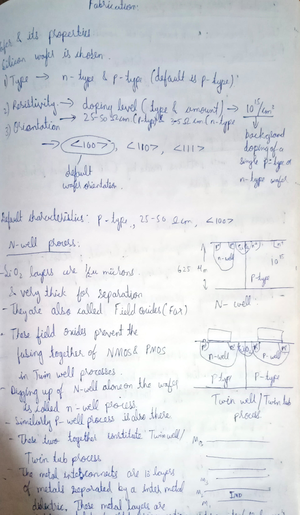 Fabrication
& its properties
Silicon wafer is chosen
1) Type → n-type & P-type (default is p-type)
2) Resistivity → doping level (type & amount) → 10^15/cm³
→ 25-50 Ω cm (P-type) 5 Ω cm (n-type
3) Orientation
→ <100>, <110>, <111>
default
wafer orientation
background
doping of a
single p-type or
n-type wafer
Default characteristics: P-type, 25-50 Ω cm, <100>
N-well process:
- SiO₂ layers are few microns
& very thick for separation
- They are also called Field Oxides (Fox)
n-well
P-type
625
N-well
- These field oxides prevent the
fusing together of NMOS & PMOS
in Twin well processes.
- Digging up of N-well alone on the wafer
is called n-well process
- Similarly P-well process is also there
- These two together constitute Twin well/
Twin tub process
n-well
P-well
P-type
P-type
Twin well / Twin tub
process.
- The metal interconnects are 10 layers
of metals separated by a inter metal
dielectric. These metal layers are